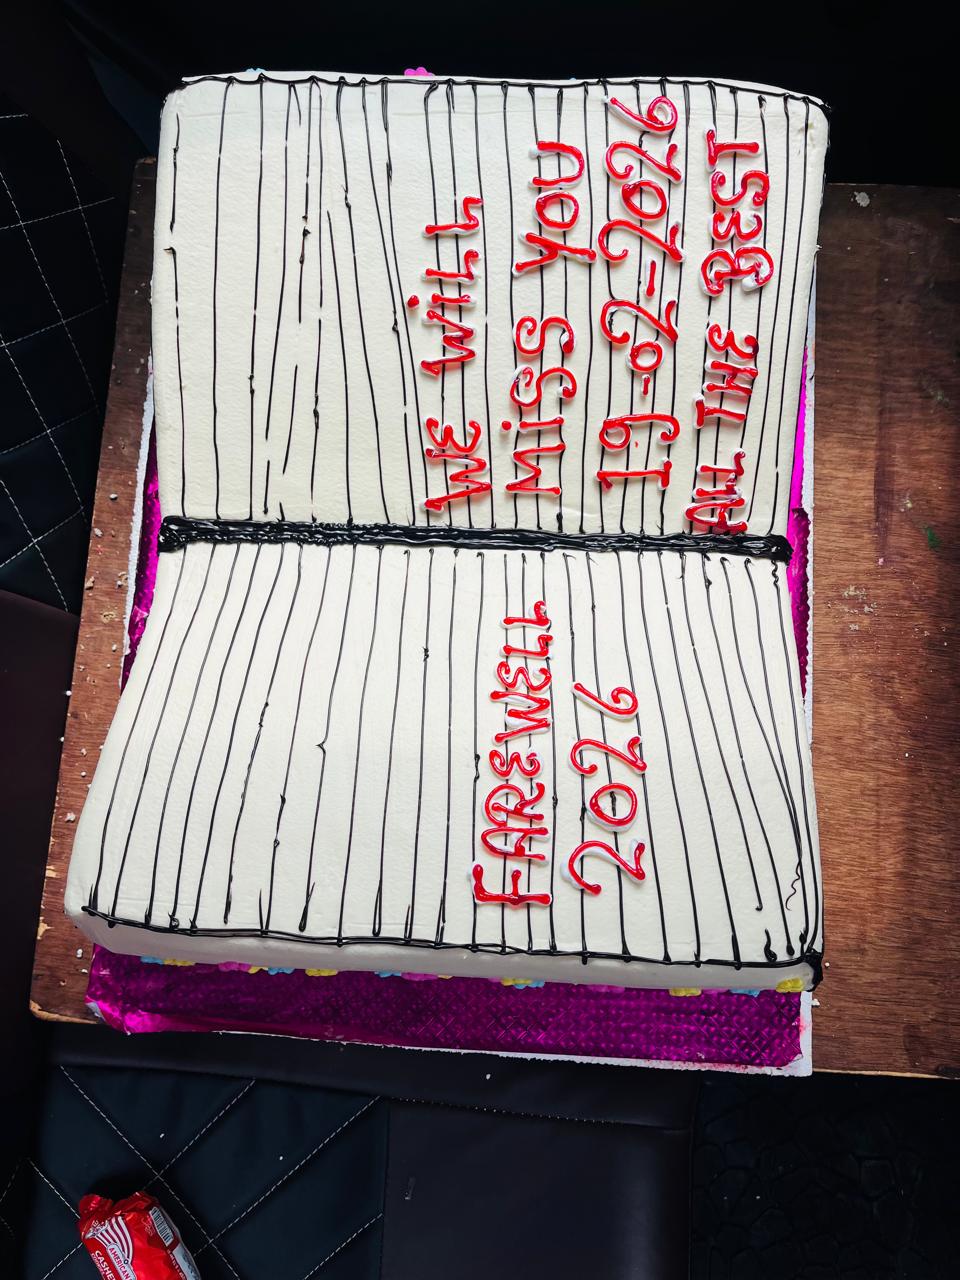 FAREWELL
2026
WE WiLL
MiSS YOU
19-02-2026
ALL THE BEST